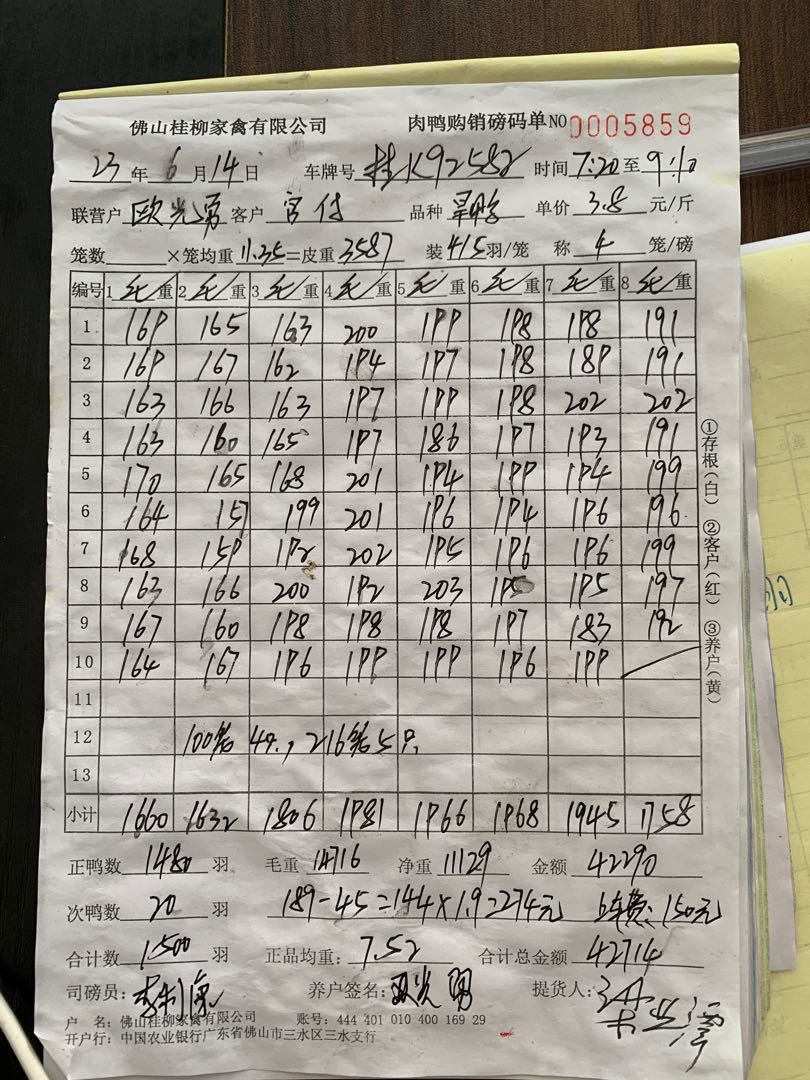 佛山桂柳家禽有限公司 肉鸭购销磅码单 NO 0005859
23 年 6 月 14 日 车牌号 桂K92582 时间 7:20 至 9:10
联营户 欧光勇 客户 品种 单价 3.8 元/斤
笼数 ×笼均重 11.35 =皮重 3587 装 4/5 羽/笼 称 4 笼/磅
编号 1 毛重 2 毛重 3 毛重 4 毛重 5 毛重 6 毛重 7 毛重 8 毛重
1 169 165 163 200 199 198 198 191
2 169 167 162 194 197 198 189 191
3 163 166 163 197 199 198 202 202
4 163 160 165 197 186 197 193 191
5 170 165 168 201 194 199 194 199
6 164 157 199 201 196 194 196 196
7 168 159 192 202 195 196 196 199
8 163 166 200 192 203 195 195 197
9 167 160 198 198 198 197 183 192
10 164 167 196 199 199 196 199
11
12 100笼4只, 216笼5只
13
小计 1660 1632 1806 1981 1966 1968 1945 1758
正鸭数 1480 羽 毛重 14716 净重 11129 金额 42290
次鸭数 20 羽 189-45=144×1.9=274元 上车费:150元
合计数 1500 羽 正品均重: 7.52 合计总金额 42714
司磅员: 养户签名: 欧光勇 提货人:
户 名:佛山桂柳家禽有限公司 账号:444 401 010 400 169 29
开户行:中国农业银行广东省佛山市三水区三水支行
①存根(白) ②客户(红) ③养户(黄)